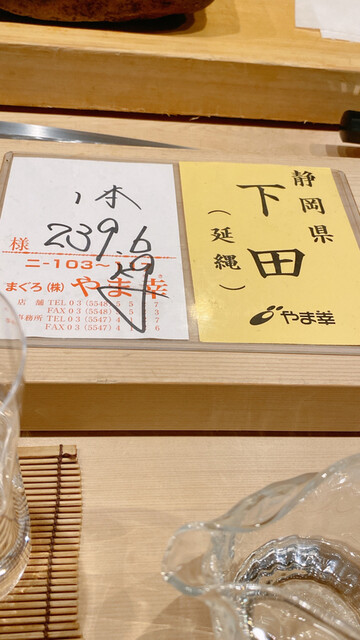 1本
様 239.6
ニ-103~
まぐろ(株) やま幸
店舗 TEL 03 (5548)
FAX 03 (5548)
事務所 TEL 03 (5547)
FAX 03 (5547) 4 1 6
静岡県
下田
(延縄)
やま幸